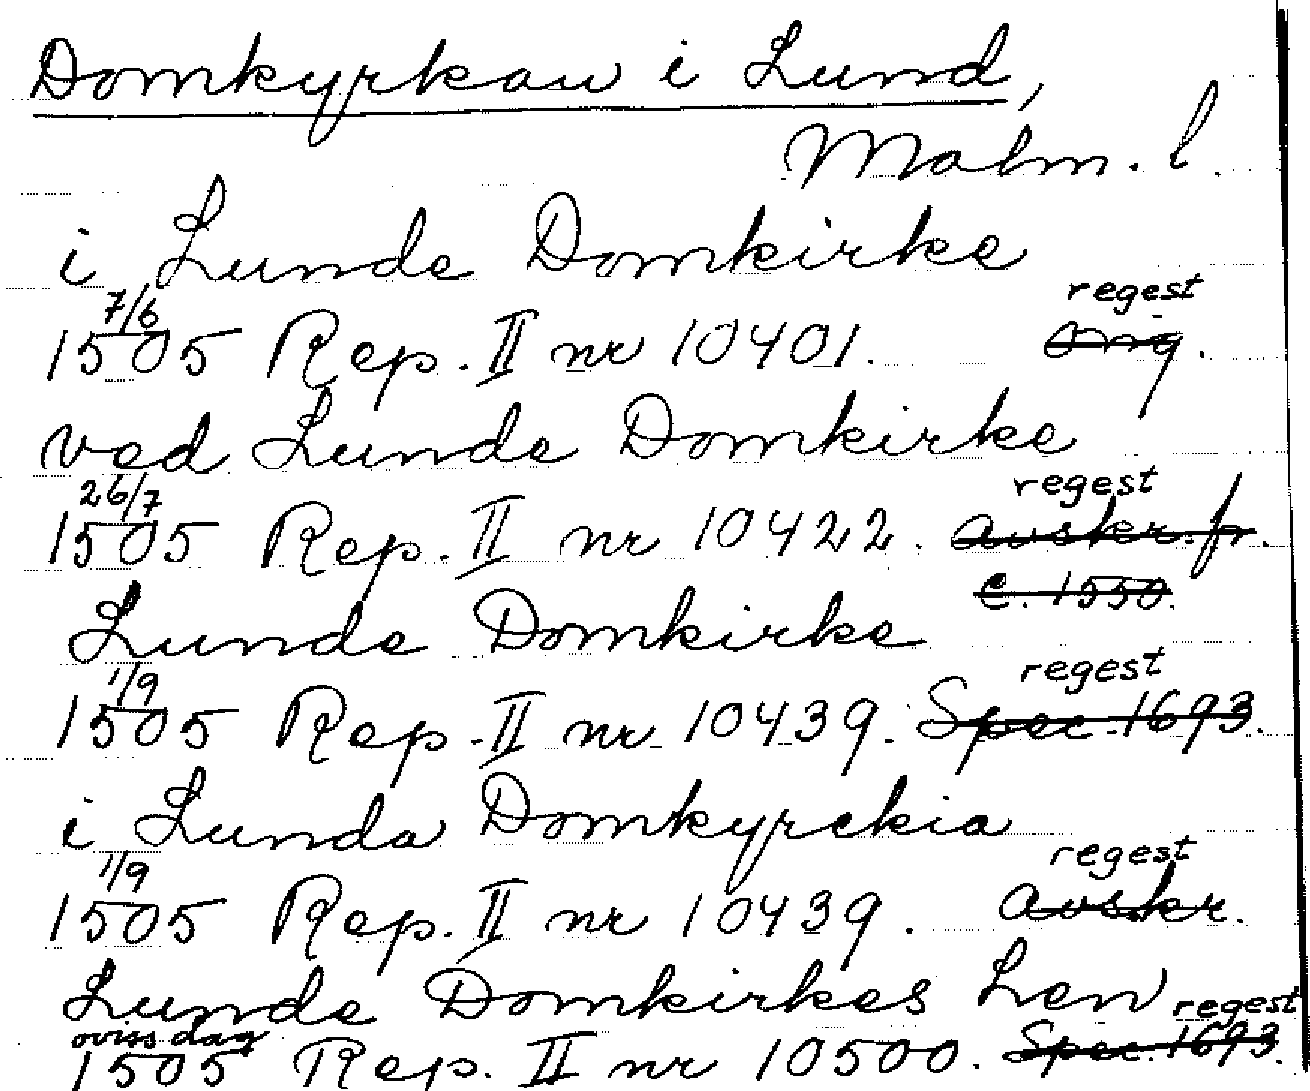 Domkyrkan i Lund,
Malm. l.
i Lunde Domkirke
7/6 regest
1505 Rep. II nr 10401. omg.
ved Lunde Domkirke
26/7 regest
1505 Rep. II nr 10422. avskr. fr.
c. 1550.
Lunde Domkirke
1/9 regest
1505 Rep. II nr 10439. Spec. 1693.
i Lunda Domkyrckia
1/9 regest
1505 Rep. II nr 10439. avskr.
Lunde Domkirkes Len regest
oviss dag
1505 Rep. II nr 10500. Spec. 1693.